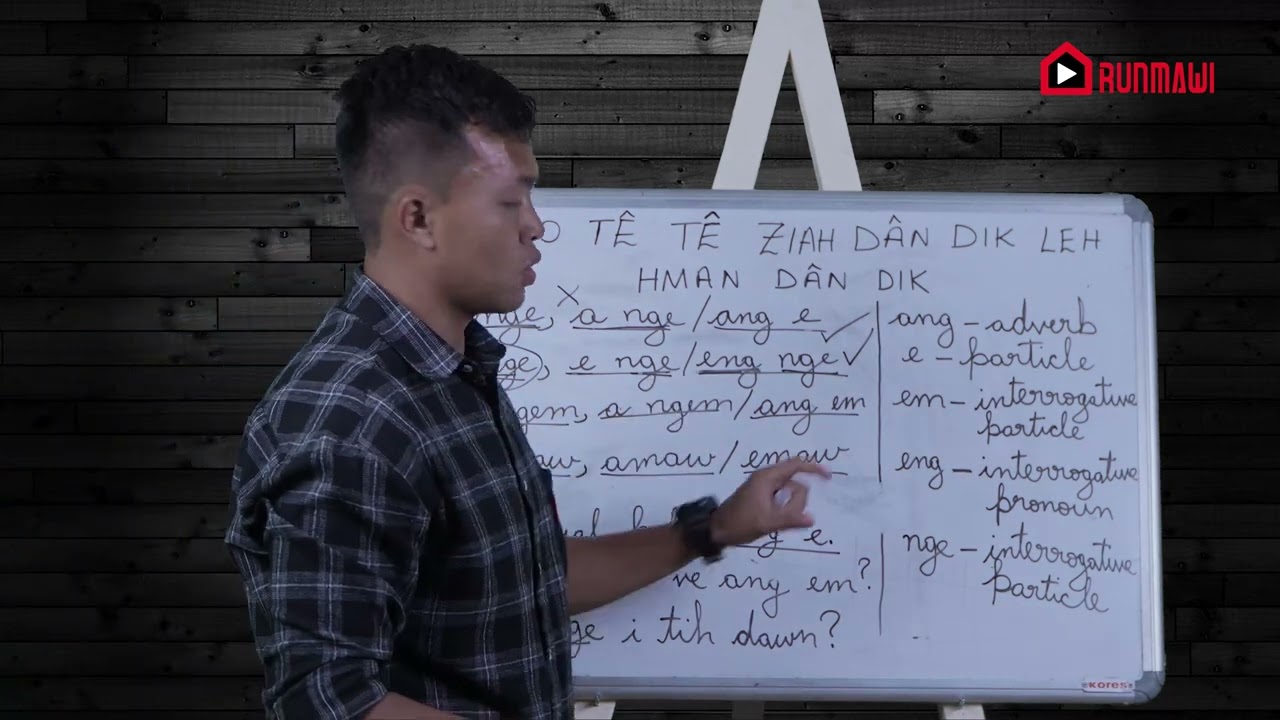 RUNMAWI
TÊ TÊ ZIAH DÂN DIK LEH
HMAN DÂN DIK
a nge/ang e
e nge/eng nge
a ngem/ang em
amaw/emaw
e.
ve ang em?
i tih dawn?
ang – adverb
e – particle
em – interrogative
particle
eng – interrogative
pronoun
nge – interrogative
particle
kores